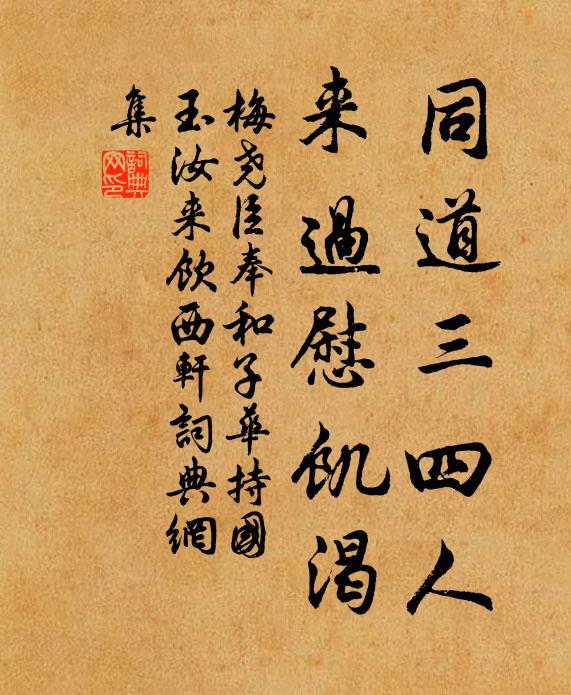 同道三四人
来過慰飢渴
梅尧臣奉和子華持國
玉汝来飲西軒詞典網
集
詞典
网印